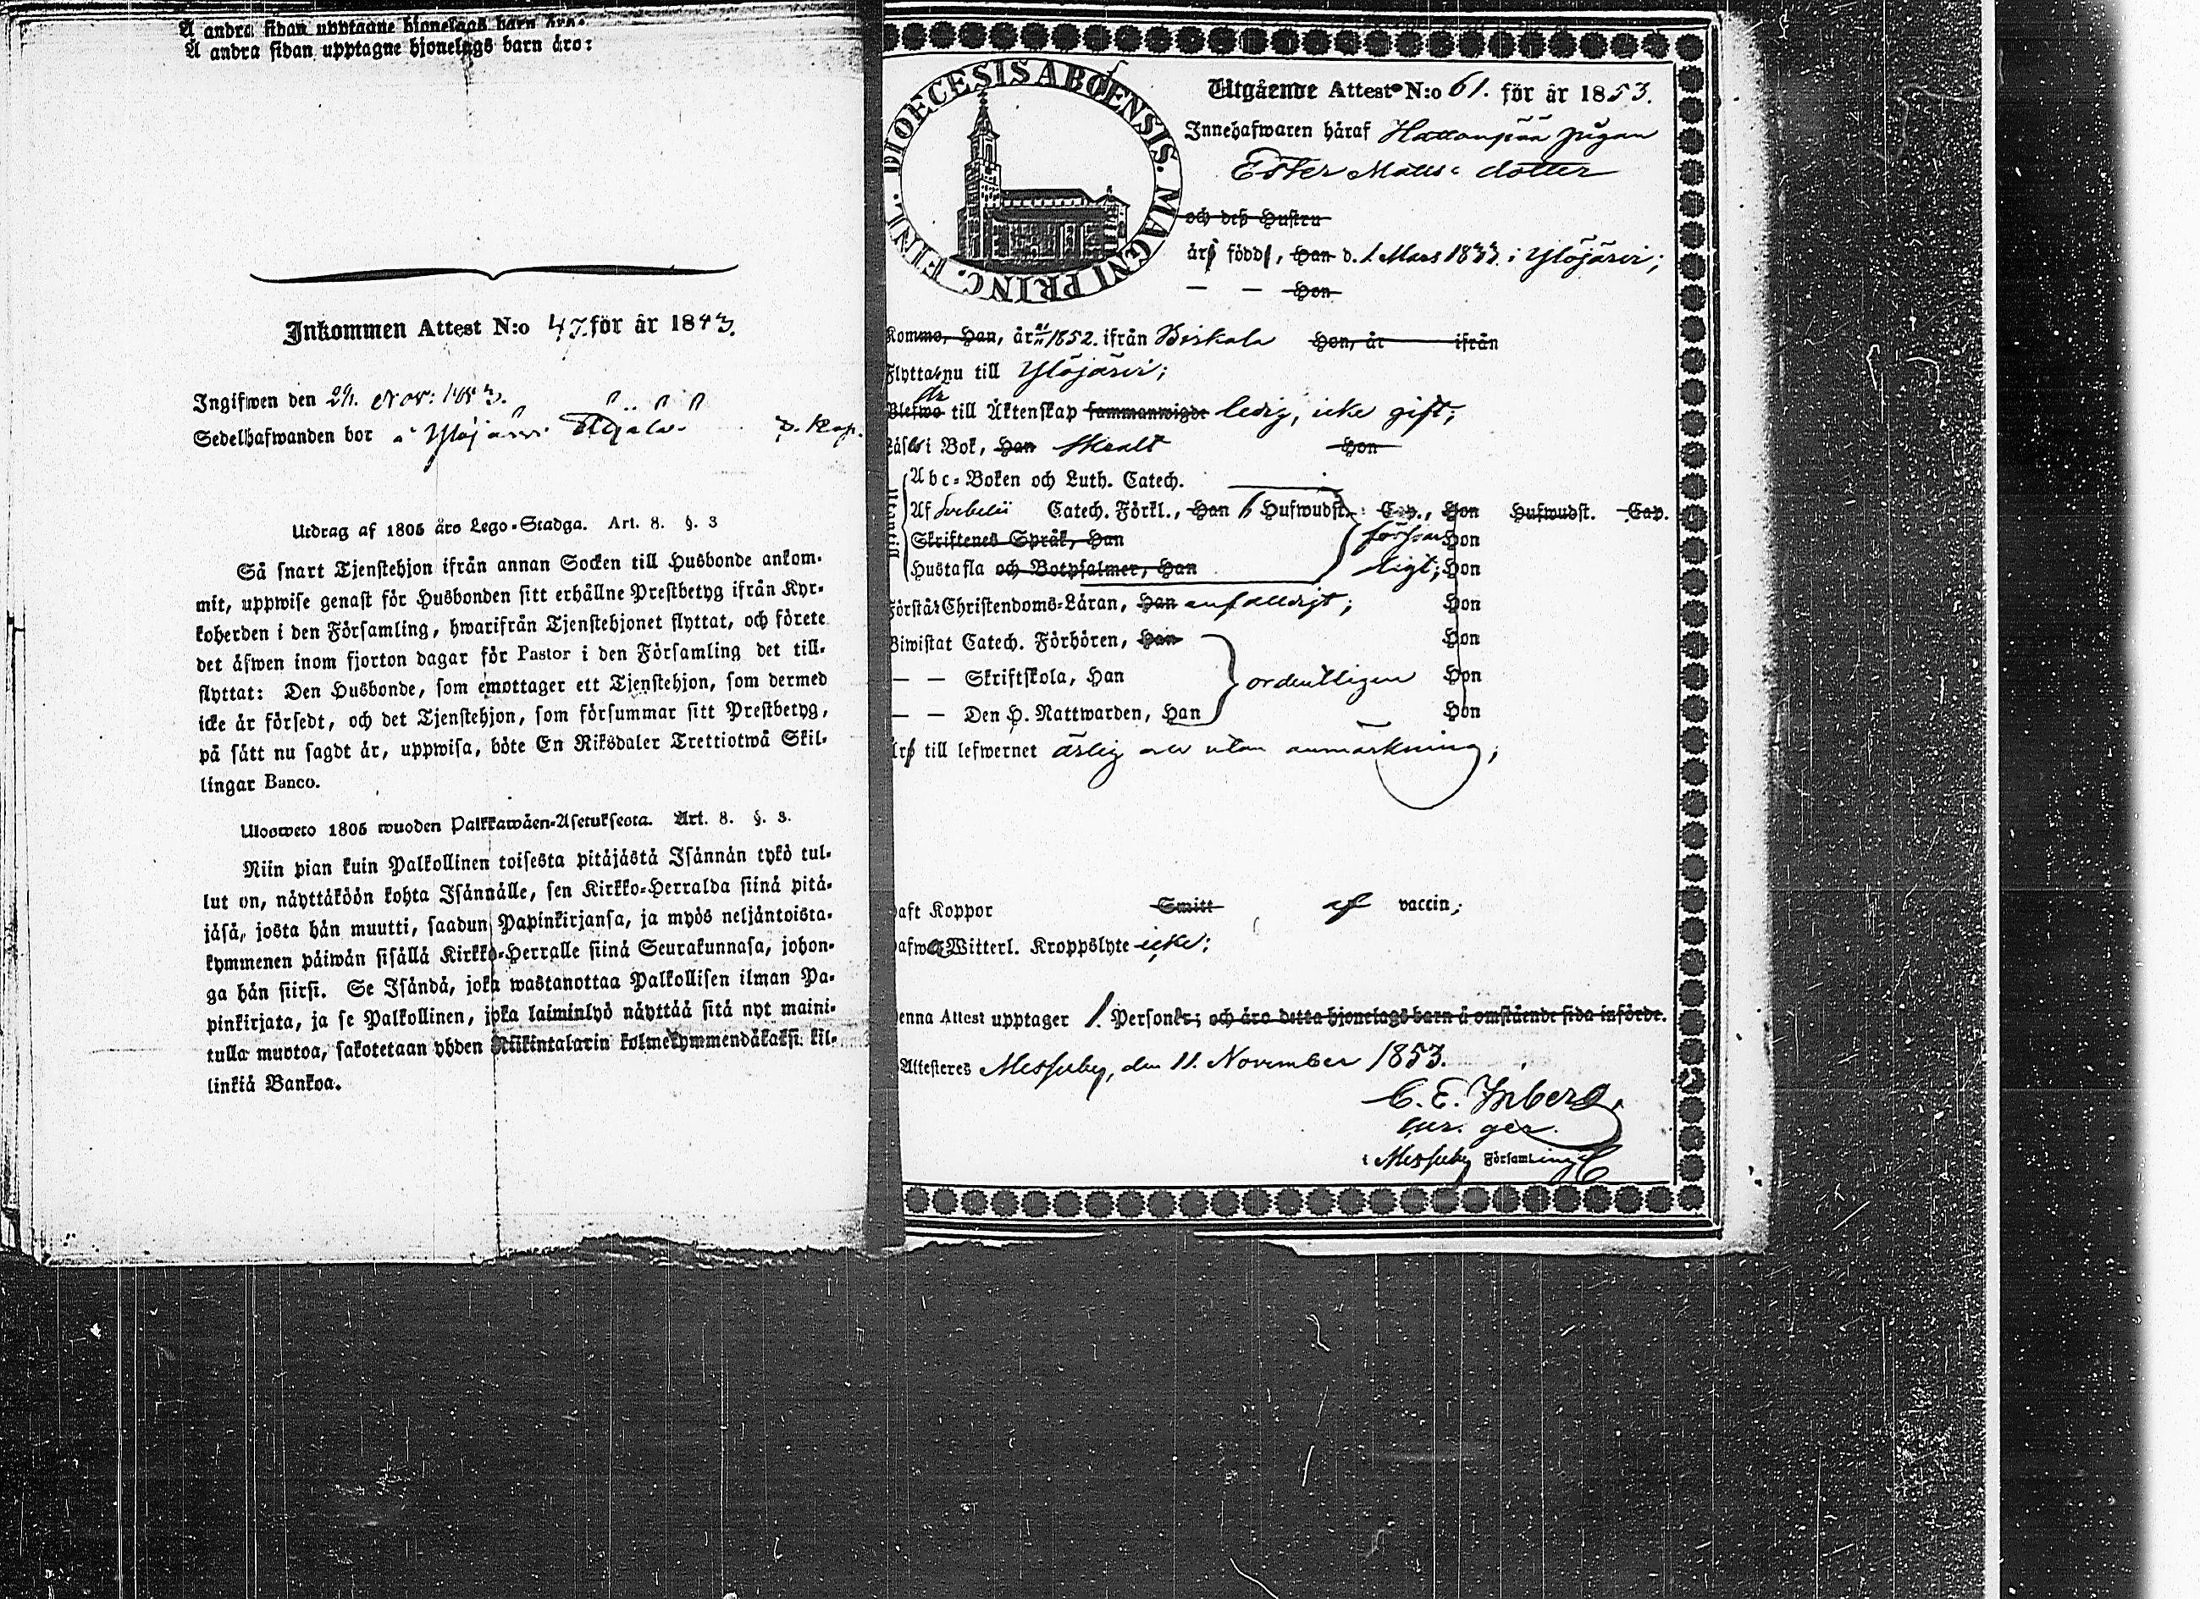 Å andra sidan upptagne hjonelags barn äro:
Å andra sidan upptagne hjonelags barn äro:
Inkommen Attest N:o 47. för år 1853.
Ingifwen den 29. Nov: 1853.
Sedelhafwanden bor å Ylöjärvi
Utdrag af 1805 års Lego-Stadga. Art. 8. §. 3
Så snart Tjenstehjon ifrån annan Socken till Husbonde ankom-
mit, uppwise genast för Husbonden sitt erhållne Prestbetyg ifrån Kyr-
koherden i den Församling, hwarifrån Tjenstehjonet flyttat, och förete
det äfwen inom fjorton dagar för Pastor i den Församling det till-
flyttat: Den Husbonde, som emottager ett Tjenstehjon, som dermed
icke är försedt, och det Tjenstehjon, som försummar sitt Prestbetyg,
på sätt nu sagdt är, uppwisa, böte En Riksdaler Trettiotwå Skil-
lingar Banco.
Ulosweto 1805 wuoden Palkkawäen-Asetuksesta. Art. 8. §. 3.
Niin pian kuin Palkollinen toisesta pitäjästä Isännän tykö tul-
lut on, näyttäköön kohta Isännälle, sen Kirkko-Herralda siinä pitä-
jäsä, josta hän muutti, saadun Papinkirjansa, ja myös neljäntoista-
kymmenen päiwän sisällä Kirkko-Herralle siinä Seurakunnasa, johon-
ga hän siirsi. Se Isändä, joka wastanottaa Palkollisen ilman Pa-
pinkirjata, ja se Palkollinen, joka laiminlyö näyttää sitä nyt maini-
tulla muotoa, sakotetaan yhden Riikintalarin kolmekymmendäkaksi kil-
linkiä Bankoa.
DIOECESIS ABOENSIS. MAGNI PRINC. FINL.
Utgående Attest N:o 61. för år 1853.
Innehafwaren häraf Hattanpää pigan
Ester Matts dotter
och deß Hustru
äro född, Han d. 1 Mars 1833 i Ylöjärvi;
— — Hon
Kommo, Han, år 1852. ifrån Birkala Hon, år ifrån
Flytta nu till Ylöjärvi;
Blefwo är till Äktenskap sammanwigde ledig, icke gift;
Läser i Bok, Han Hon
Utantill
Abc-Boken och Luth. Catech.
Af Svebelii Catech. Förkl., Han 6 Hufwudst. Cap., Hon Hufwudst. Cap.
Skriftenes Språk, Han försvar Hon
Hustafla och Botpsalmer, Han ligt; Hon
Förstår Christendoms-Läran, Han enfaldigt; Hon
Biwistat Catech. Förhören, Han Hon
— — Skriftskola, Han ordentligen Hon
— — Den H. Nattwarden, Han Hon
Äro till lefwernet ärlig och utan anmärkning;
Haft Koppor Smitt af vaccin;
Hafwa Witterl. Kroppslyte icke;
Denna Attest upptager 1. Personer; och äro detta hjonelags barn å omstående sida införde.
Attesteres Messuby, den 11. November 1853.
C. E. Inberg.
cur. ger.
i Messuby Församling